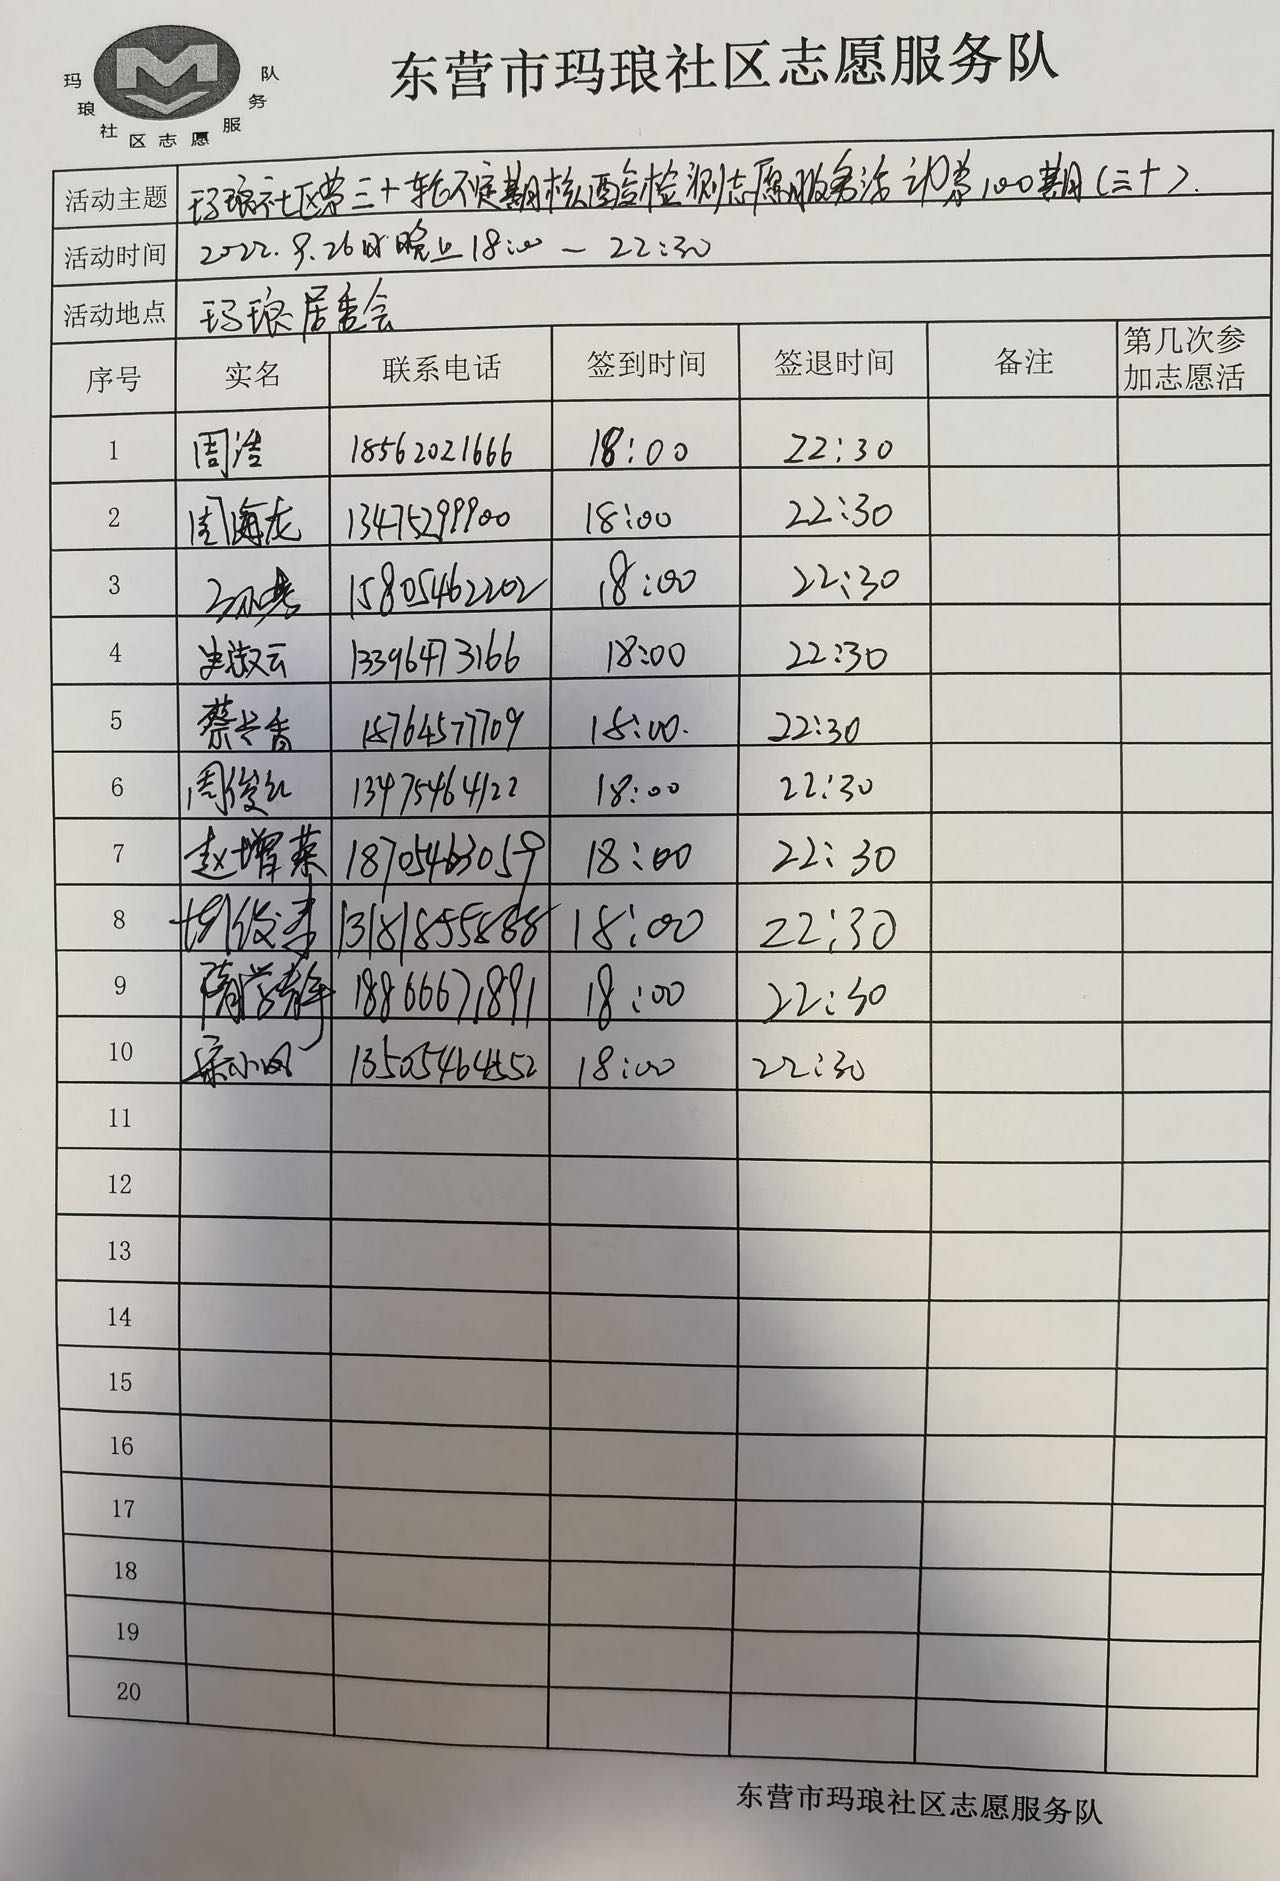 玛琅社区志愿服务队
东营市玛琅社区志愿服务队
活动主题 玛琅社区第三十轮不定期核酸检测志愿服务活动第100期(三十).
活动时间 2022.9.26日晚上18:00-22:30
活动地点 玛琅居委会
序号 实名 联系电话 签到时间 签退时间 备注 第几次参加志愿活
1 周浩 18562021666 18:00 22:30
2 周海龙 13475299900 18:00 22:30
3 15805462202 18:00 22:30
4 史淑云 13396473166 18:00 22:30
5 蔡长香 18764577709 18:00. 22:30
6 周俊红 13475464122 18:00 22:30
7 赵增荣 18705463059 18:00 22:30
8 13181855888 18:00 22:30
9 隋学静 18866671891 18:00 22:30
10 宋小凤 13505464552 18:00 22:30
11
12
13
14
15
16
17
18
19
20
东营市玛琅社区志愿服务队